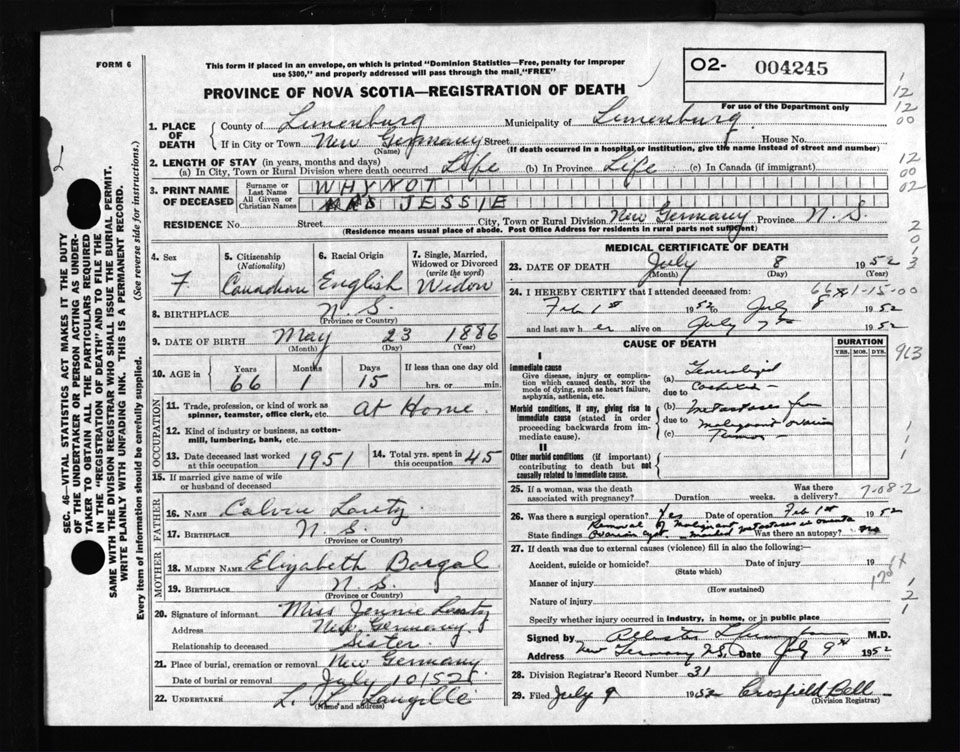 FORM 6
This form if placed in an envelope, on which is printed "Dominion Statistics—Free, penalty for improper
use $300," and properly addressed will pass through the mail "FREE"
O2- 004245
For use of the Department only
PROVINCE OF NOVA SCOTIA—REGISTRATION OF DEATH
1. PLACE OF DEATH County of Lunenburg Municipality of Lunenburg
If in City or Town New Germany Street House No.
(Name) (If death occurred in a hospital or institution, give the name instead of street and number)
2. LENGTH OF STAY (in years, months and days)
(a) In City, Town or Rural Division where death occurred Life (b) In Province Life (c) In Canada (if immigrant)
3. PRINT NAME OF DECEASED Surname or Last Name WHYNOT
All Given or Christian Names MRS JESSIE
RESIDENCE No. Street City, Town or Rural Division New Germany Province N.S.
(Residence means usual place of abode. Post Office Address for residents in rural parts not sufficient)
4. Sex F
5. Citizenship (Nationality) Canadian
6. Racial Origin English
7. Single, Married, Widowed or Divorced (write the word) Widow
8. BIRTHPLACE N.S
(Province or Country)
9. DATE OF BIRTH May 23 1886
(Month) (Day) (Year)
10. AGE in Years 66 Months 1 Days 15 If less than one day old hrs. or min.
OCCUPATION
11. Trade, profession, or kind of work as spinner, teamster, office clerk, etc. at Home.
12. Kind of industry or business, as cotton-mill, lumbering, bank, etc.
13. Date deceased last worked at this occupation 1951
14. Total yrs. spent in this occupation 45
15. If married give name of wife or husband of deceased
FATHER
16. Name Calvin
17. Birthplace N.S.
(Province or Country)
MOTHER
18. MAIDEN NAME Elizabeth
19. BIRTHPLACE N.S.
(Province or Country)
20. Signature of informant Miss Jennie
Address New Germany.
Relationship to deceased Sister
21. Place of burial, cremation or removal New Germany
Date of burial or removal July 10/52
22. UNDERTAKER L. L. Langille
(Name and address)
MEDICAL CERTIFICATE OF DEATH
23. DATE OF DEATH July 8 1952
(Month) (Day) (Year)
24. I HEREBY CERTIFY that I attended deceased from: 66 1-15-00
Feb 1st 1952 to July 8 1952
and last saw her alive on July 7th 1952
CAUSE OF DEATH
DURATION
YRS. MOS. DYS.
I
Immediate cause
Give disease, injury or complication which caused death, NOT the mode of dying, such as heart failure, asphyxia, asthenia, etc.
(a) Generalized
due to
Morbid conditions, if any, giving rise to immediate cause (stated in order proceeding backwards from immediate cause).
(b) metastases from
due to malignant ovarian
(c)
II
Other morbid conditions (if important) contributing to death but not causally related to immediate cause.
25. If a woman, was the death associated with pregnancy? Duration weeks. Was there a delivery? 7-08-2
26. Was there a surgical operation? Yes Date of operation Feb 1st 1952
State findings Removal of malignant ovarian cyst - marked metastases in omenta Was there an autopsy? no
27. If death was due to external causes (violence) fill in also the following:—
Accident, suicide or homicide? Date of injury 19
(State which)
Manner of injury
(How sustained)
Nature of injury
Specify whether injury occurred in industry, in home, or in public place
Signed by M.D.
Address New Germany N.S. Date July 9th 1952
28. Division Registrar's Record Number 31
29. Filed July 9 1952 Crosfield Bell
(Division Registrar)
SEC. 46—VITAL STATISTICS ACT MAKES IT THE DUTY
OF THE UNDERTAKER OR PERSON ACTING AS UNDER-
TAKER TO OBTAIN ALL THE PARTICULARS REQUIRED
IN THE "REGISTRATION OF DEATH" AND TO FILE THE
SAME WITH THE DIVISION REGISTRAR WHO SHALL ISSUE THE BURIAL PERMIT.
WRITE PLAINLY WITH UNFADING INK. THIS IS A PERMANENT RECORD.
Every item of information should be carefully supplied. (See reverse side for instructions.)
1
12
12
00
12
00
02
2
0
1
3
963
1
1
1
2
1